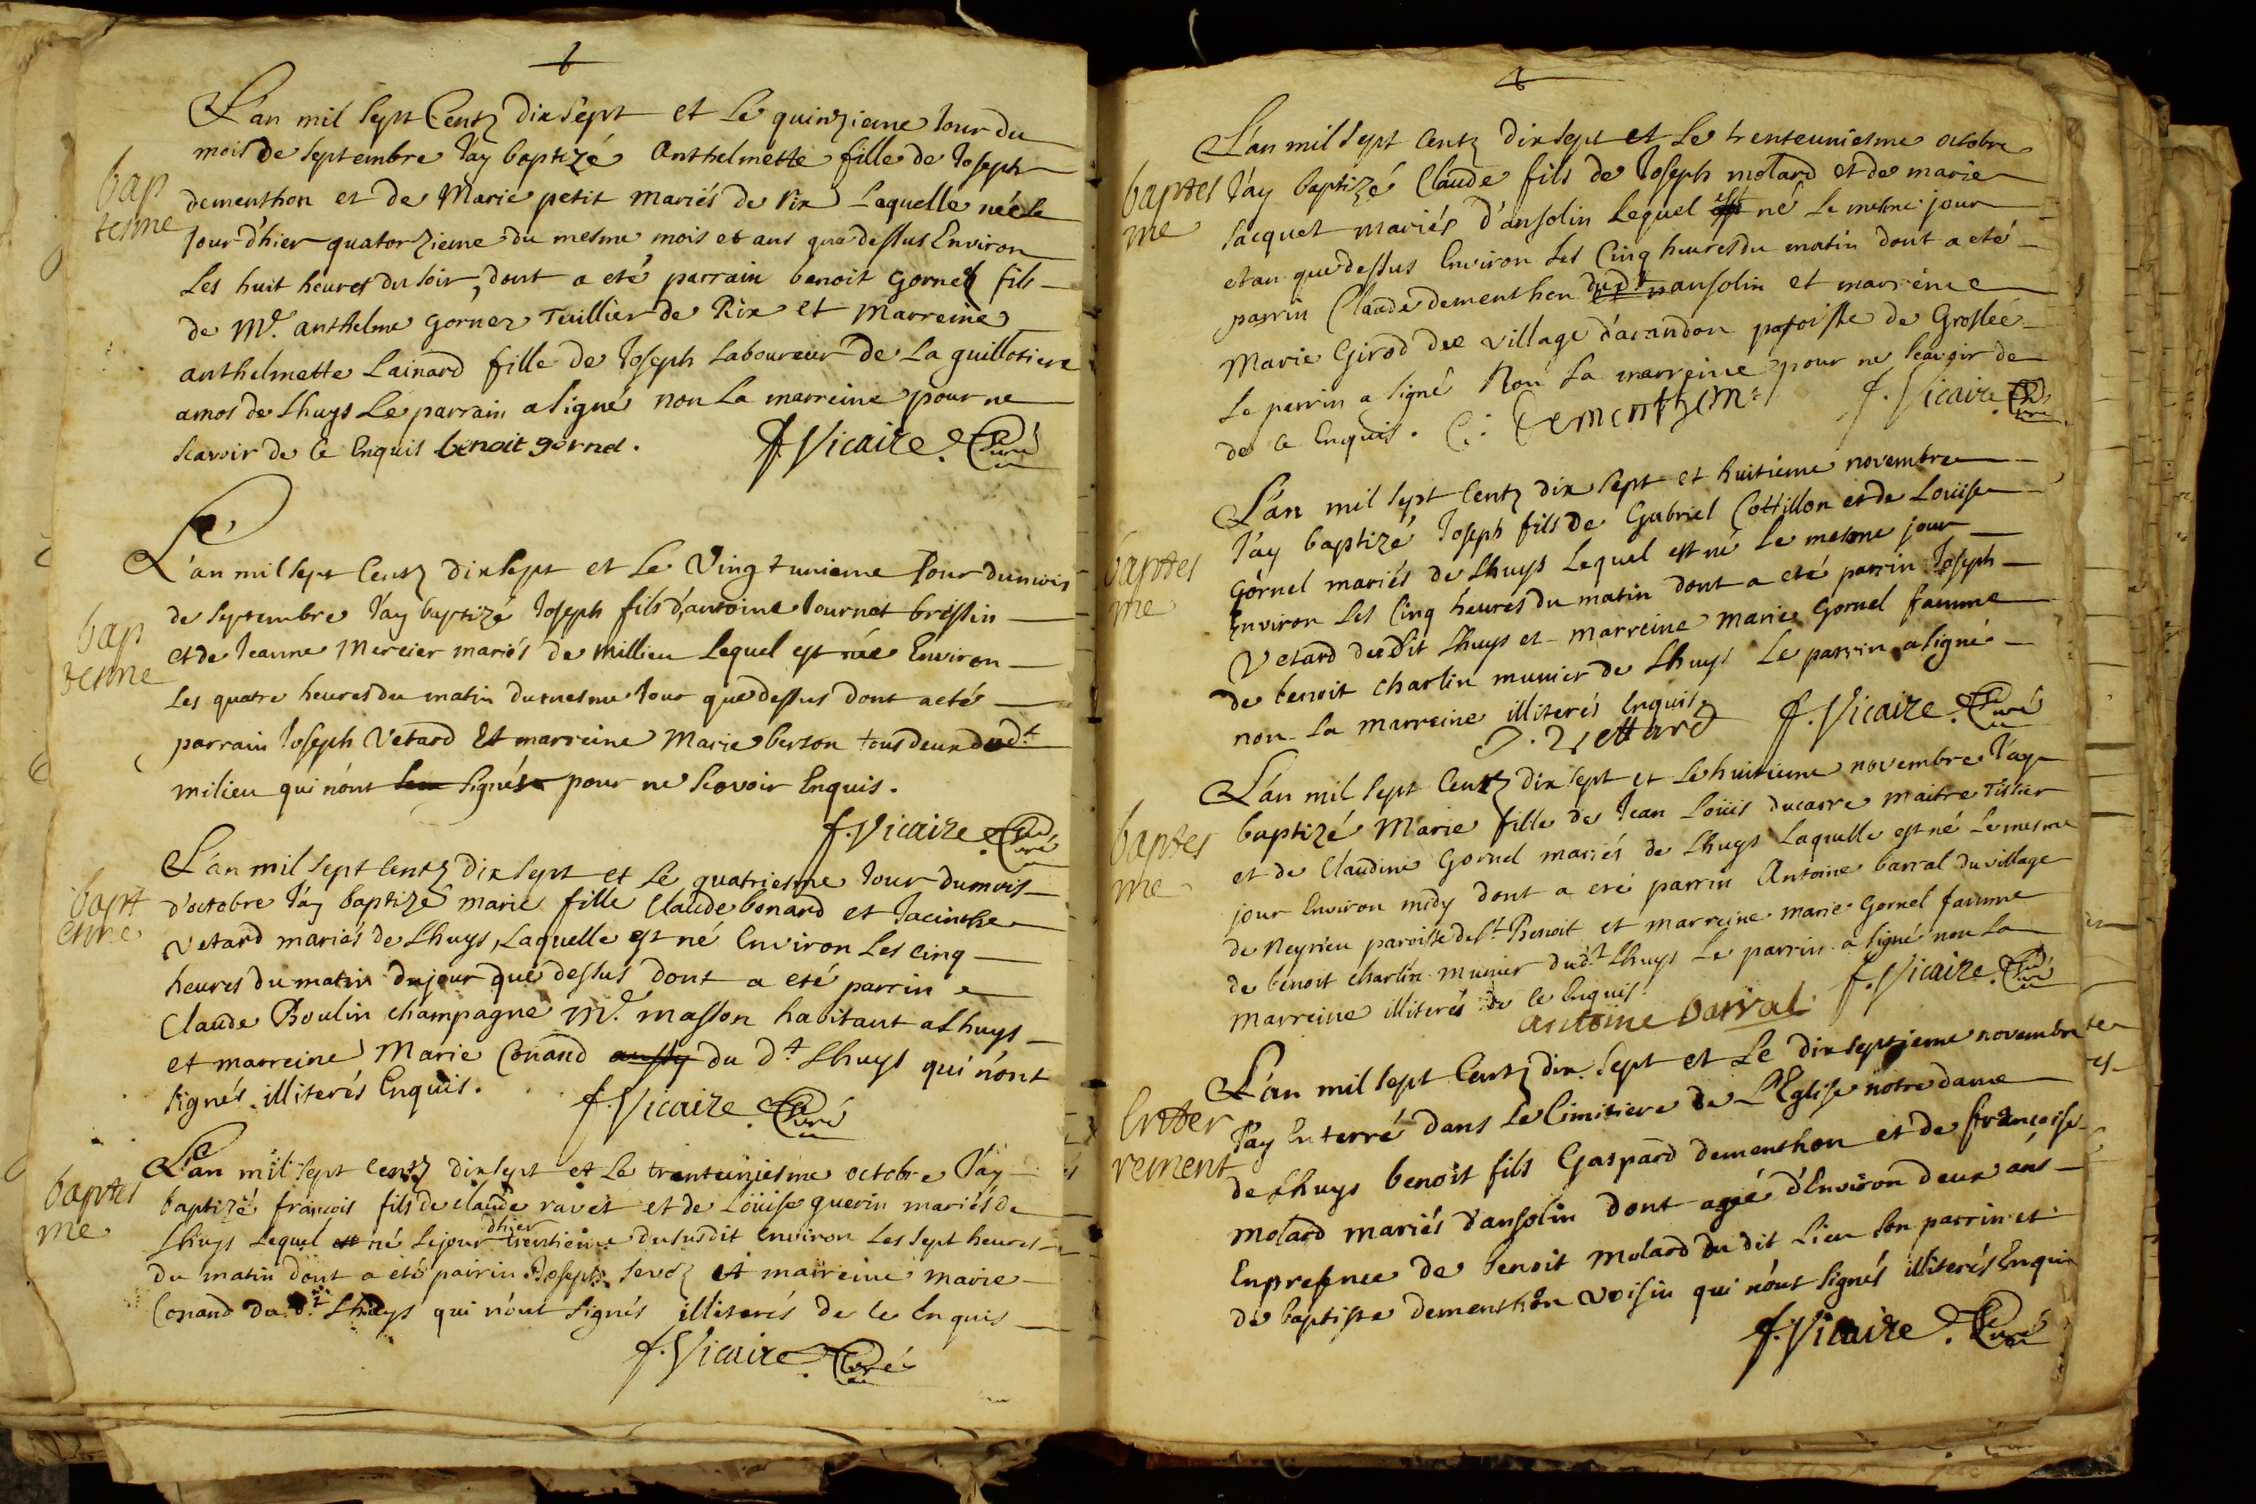 L'an mil sept Centz dix sept et le quinzieme Jour du
mois de septembre J'ay baptizé Anthelmette fille de Joseph
bap
tesme
dementhon et de Marie petit mariés de Rix Laquelle née le
jour d'hier quatorzieme du mesme mois et ans que dessus Environ
Les huit heures du soir, dont a eté parrain benoit gornet fils
de Me. anthelme gornez Tuillier de Rix et Marreine
anthelmette Lainard fille de Joseph Laboureur de La guillotiere
amos de Lhuys Le parrain a signé non La marreine pour ne
scavoir de ce Enquis benoit gornel.
f. Vicaire. Curé
L'an mil sept Centz dix sept et Le Vingt unieme Jour du mois
bap
tesme
de septembre J'ay baptizé Joseph fils d'antoine Tournet bressin
et de Jeanne Mercier mariés de millieu Lequel est née Environ
Les quatre heures du matin du mesme Jour que dessus dont a eté
parrain Joseph Vetard Et marreine Marie berton tous deux dudt
milieu qui n'ont signés pour ne scavoir Enquis.
f. Vicaire. Curé
L'an mil sept Centz dix sept et Le quatriesme Jour du mois
bapt
esme
d'octobre J'ay baptizé marie fille Claude bonard et Jacinthe
Vetard mariés de Lhuys, Laquelle est né Environ Les cinq
heures du matin du jour que dessus dont a eté parrin
Claude Boulin champagne Me. masson habitant a Lhuys
et marreine Marie Conand aussy du dt Lhuys qui n'ont
signés illiterés Enquis.
f. Vicaire. Curé
L'an mil sept Centz dix sept et Le trenteuniesme octobre J'ay
baptes
me
baptizé francois fils de claude ravet et de Loüise guerin mariés de
Lhuys Lequel est né Le jour dhier trentieme du susdit Environ Les sept heures
du matin dont a eté parrin Joseph servoz et marreine marie
Conand du dt Lhuys qui n'ont signés illiterés de ce Enquis
f. Vicaire. Curé
L'an mil sept Centz dix sept et Le trenteuniesme octobre
baptes
me
J'ay baptizé Claude fils de Joseph molard et de marie
Jacquet mariés d'ansolin Lequel est né Le mesme jour
et an que dessus Environ Les Cinq heures du matin dont a eté
parrin Claude dementhon dudt ansolin et marreine
Marie Girod du village d'arandon paroisse de Groslée
Le parrin a signé Non La marreine pour ne scavoir de
de ce Enquis. C: Dementhon
f. Vicaire. Curé
L'an mil sept Centz dix sept et huitieme novembre
baptes
me
J'ay baptizé Joseph fils de Gabriel Cottillon et de Loüise
Gornel mariés de Lhuys Lequel est né Le mesme jour
Environ Les Cinq heures du matin dont a eté parrin Joseph
Vetard du dit Lhuys et marreine Marie Gornel famme
de benoit charlin munier de Lhuys Le parrin a signé
non La marreine illiterés Enquis.
J. Vettard
f. Vicaire. Curé
L'an mil sept Centz dix sept et Le huitieme novembre J'ay
baptes
me
baptizé Marie fille de Jean Loüis ducarre maitre Tissier
et de Claudine Gornel mariés de Lhuys Laquelle est né Le mesme
jour Environ midy dont a eté parrin Antoine barral du village
de Neyrieu paroisse de st Benoit et marreine marie Gornel famme
de benoit charlin munier dudt Lhuys Le parrin a signé non La
marreine illiterés de ce Enquis.
antoine barral
f. Vicaire. Curé
L'an mil sept Centz dix sept et Le dix septieme novembre
Enter
rement
J'ay Enterré dans Le Cimitiere de L'Eglise notre dame
de Lhuys benoit fils Gaspard dementhon et de francoise
molard mariés d'ansolin dont agé d'Environ deux ans
En presence de benoit molard du dit Lieu son parrin et
de baptiste dementhon voisin qui n'ont signés illiterés Enquis
f. Vicaire. Curé